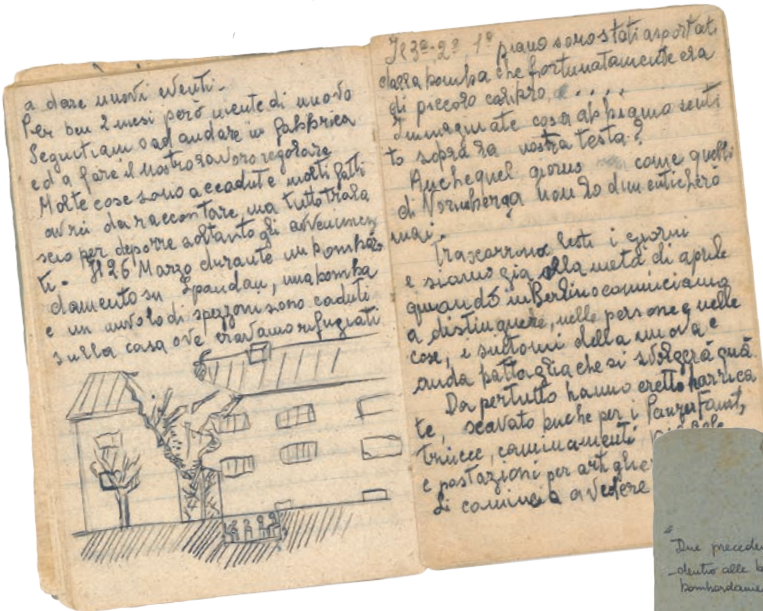 a dare nuovi eventi.
Per ben 2 mesi però niente di nuovo
Seguitiamo ad andare in fabbrica
ed a fare il nostro lavoro regolare
Molte cose sono accadute molti fatti
avrei da raccontare, ma tutto trala
scio per deporre soltanto gli avvenimen
ti. Il 26 Marzo durante un bombar
damento su Spandau, una bomba
e un nuvolo di spezzoni sono caduti
sulla casa ove eravamo rifugiati
Il 3º-2º 1º piano sono stati asportati
dalla bomba che fortunatamente era
di piccolo calibro.....
Immaginate cosa abbiamo senti
to sopra la nostra testa?
Anche quel giorno come quelli
di Norimberga non lo dimenticherò
mai.
Trascorrono lesti i giorni
e siamo già alla metà di aprile
quando in Berlino cominciamo
a distinguere, nelle persone e nelle
cose, i sintomi della nuova e
cruda battaglia che si svolgerà quà.
Da pertutto hanno eretto barrica
te, scavato buche per i Panzer Faust,
trincee, camminamenti
e postazioni per artiglie
si comincia a vedere
"Due preced
dentro alle b
bombardame